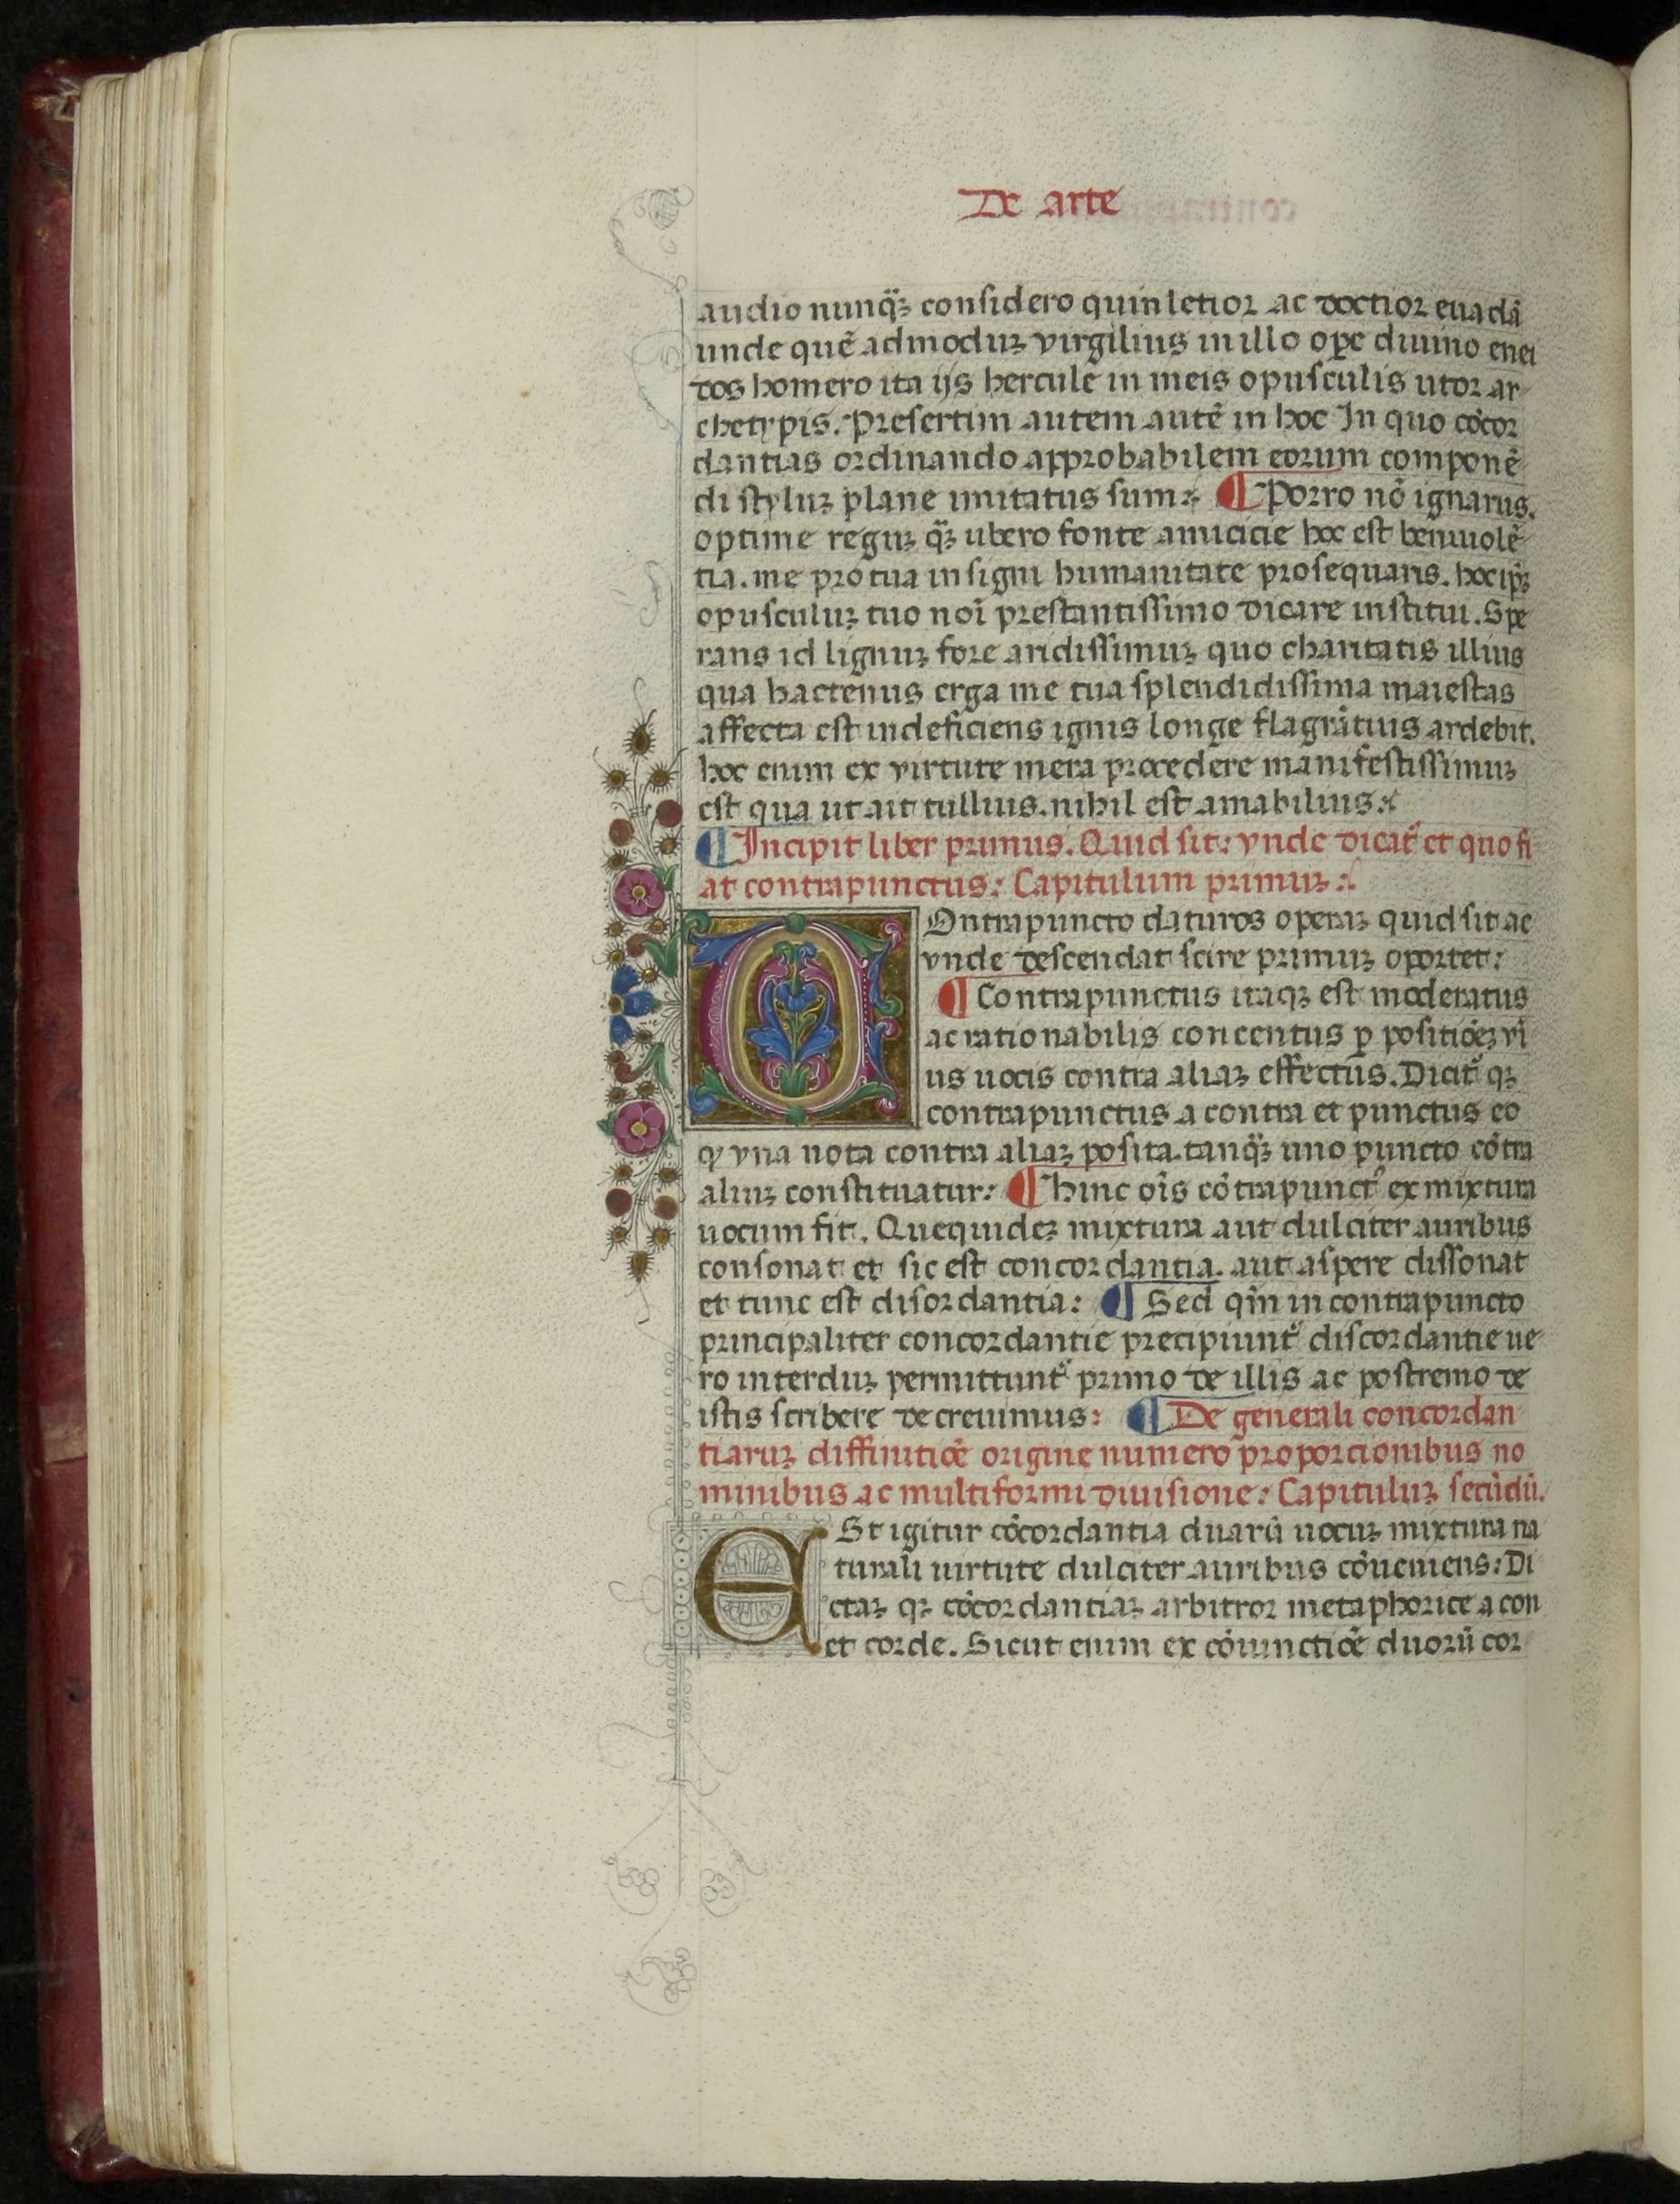 De arte
audio nunq̃ꝫ considero quin letior ac doctior euadã
unde quẽ admoduꝫ virgilius in illo oꝑe diuino enei
dos homero ita ijs hercule in meis opusculis utor ar
chetypis. Presertim autem autẽ in hoc In quo cõcor
dantias ordinando approbabilem eorum componẽ
di styluꝫ plane imitatus sum: ¶ Porro nõ ignarus.
optime reguꝫ q̃ꝫ ubero fonte amicicie hoc est beniuolẽ
tia. me pro tua insigni humanitate prosequaris. hoc ip̃ꝫ
opusculuꝫ tuo noĩ prestantissimo dicare institui. Spe
rans id lignuꝫ fore aridissimuꝫ quo charitatis illius
qua hactenus erga me tua splendidissima maiestas
affecta est indeficiens ignis longe flagrãtius ardebit.
hoc enim ex virtute mera procedere manifestissimuꝫ
est qua ut ait tullius. nihil est amabilius:
¶ Incipit liber primus. Quid sit: vnde dicat᷑ et quo fi
at contrapunctus: Capitulum primuꝫ:
COntrapuncto daturos operaꝫ quid sit ac
vnde descendat scire primuꝫ oportet:
¶ Contrapunctus itaqꝫ est moderatus
ac rationabilis concentus ꝑ positiõeꝫ vni
us uocis contra aliaꝫ effectus. Dicit᷑ qꝫ
contrapunctus a contra et punctus eo
ꝙ vna nota contra aliaꝫ posita. tanq̃ꝫ uno puncto cõtra
aliuꝫ constituatur: ¶ Hinc oĩs cõtrapunct᷒ ex mixtura
uocum fit. Quequideꝫ mixtura aut dulciter auribus
consonat et sic est concordantia. aut aspere dissonat
et tunc est disordantia: ¶ Sed qm̃ in contrapuncto
principaliter concordantie precipiunt᷑ discordantie ue
ro interduꝫ permittunt᷑ primo de illis ac postremo de
istis scribere decreuimus: ¶ De generali concordan
tiaruꝫ diffinitiõe origine numero proporcionibus no
minibus ac multiformi diuisione: Capituluꝫ secũdũ.
ESt igitur cõcordantia duarũ uocuꝫ mixtura na
turali uirtute dulciter auribus cõueniens: Di
ctaꝫ qꝫ cõcordantiaꝫ arbitror metaphorice a con
et corde. Sicut enim ex cõiunctiõe duorũ cor